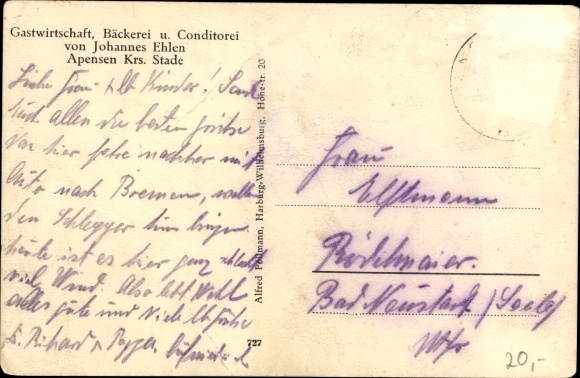 Gastwirtschaft, Bäckerei u. Conditorei
von Johannes Ehlen
Apensen Krs. Stade
Liebe Frau u. lb. Kinder! Sende
Euch allen die besten Grüße
Von hier fahre nachher mit
Auto nach Bremen, wollen
den Schlepper hin bringen
heute ist es hier ganz schlecht
viel Wind. Also lebt Wohl
alles gute und Viele Grüße
Richard
Alfred Pollmann, Harburg-Wilhelmsburg, Hohestr. 20
727
Frau
Elstmann
Rödelmaier.
Bad Neustadt / Saale
20,-